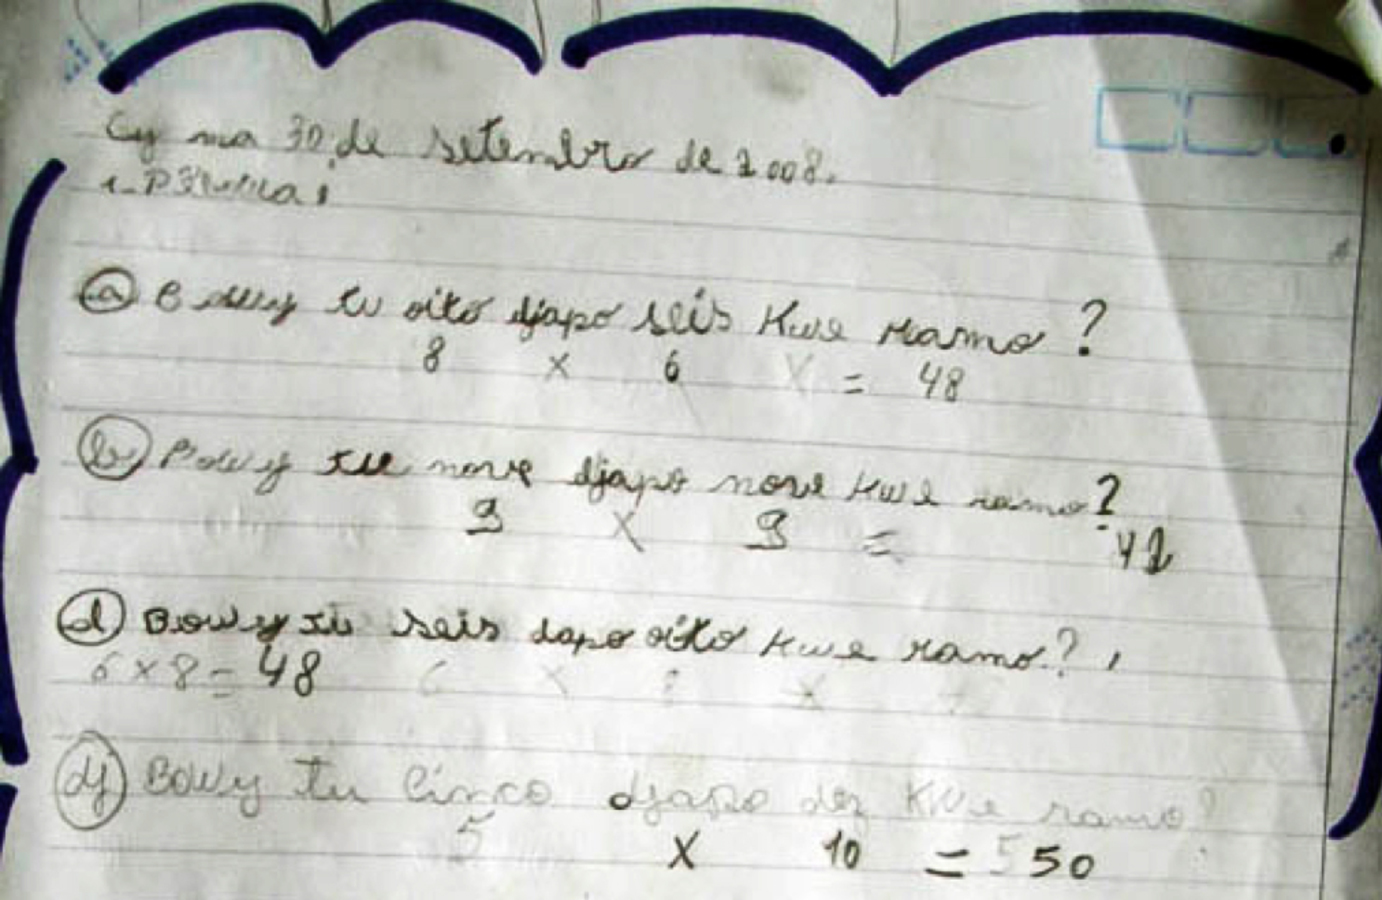 Cy ma 30 de setembro de 2008.
a Bowy tu oito djapo seis Kwe ramo?
8 x 6 = 48
b Bowy tu nove djapo nove Kwe ramo?
9 x 9 = 41
d Bowy tu seis dapo oito Kwe ramo?
6 x 8 = 48
dj Bowy tu Cinco djapo dez KWe ramo?
5 x 10 = 50